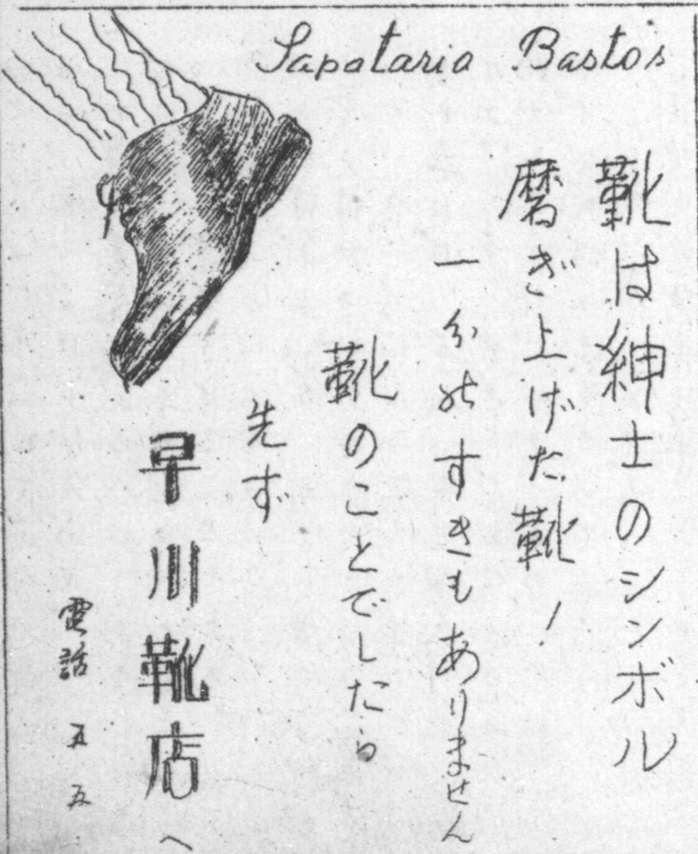 Sapataria Bastos
靴は紳士のシンボル
磨ぎ上げた靴!
一分のすきもありません
靴のことでしたら
先ず
早川靴店へ
電話 五五